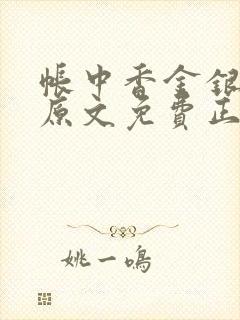 帳中香金銀
原文免費正
姚一鳴